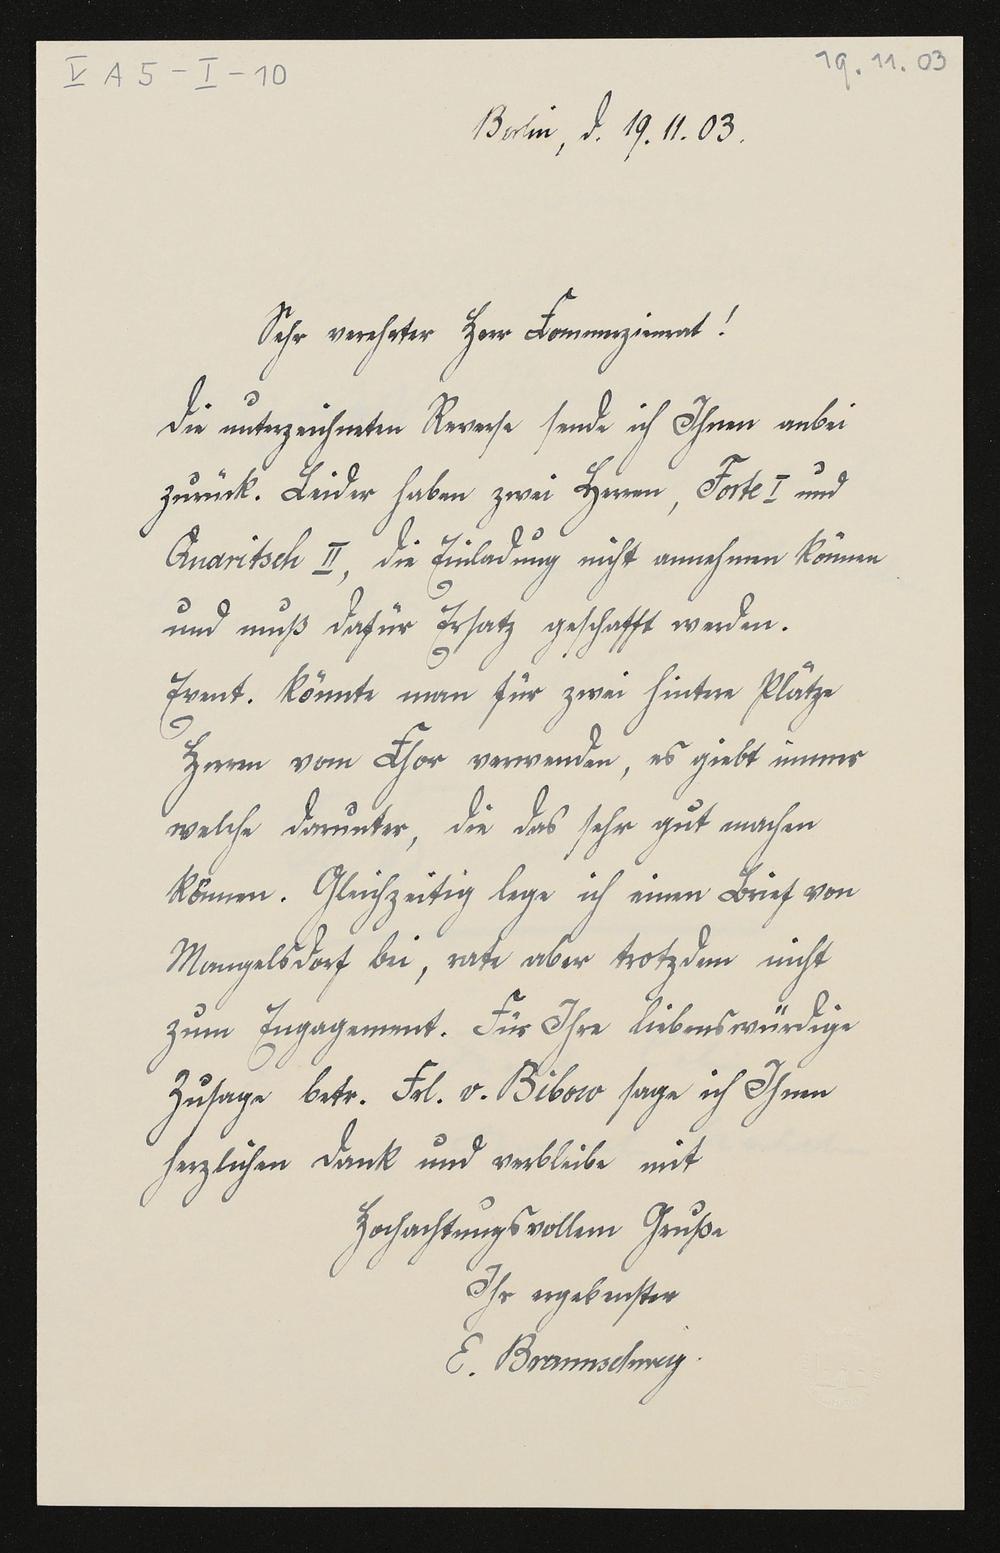 V A 5 - I - 10
19. 11. 03
Berlin, d. 19. 11. 03.
Sehr verehrter Herr Commerzienrat!
Die unterzeichneten Reverse sende ich Ihnen anbei
zurück. Leider haben zwei Herren, Forte I und
Quaritsch II, die Einladung nicht annehmen können
und muß dafür Ersatz geschafft werden.
Event. könnte man für zwei hintere Plätze
Herren vom Chor verwenden, es giebt immer
welche darunter, die das sehr gut machen
können. Gleichzeitig lege ich einen Brief von
Mangelsdorf bei, rate aber trotzdem nicht
zum Engagement. Für Ihre liebenswürdige
Zusage betr. Frl. v. Bibow sage ich Ihnen
herzlichen Dank und verbleibe mit
Hochachtungsvollem Gruße
Ihr ergebenster
E. Braunschweig.